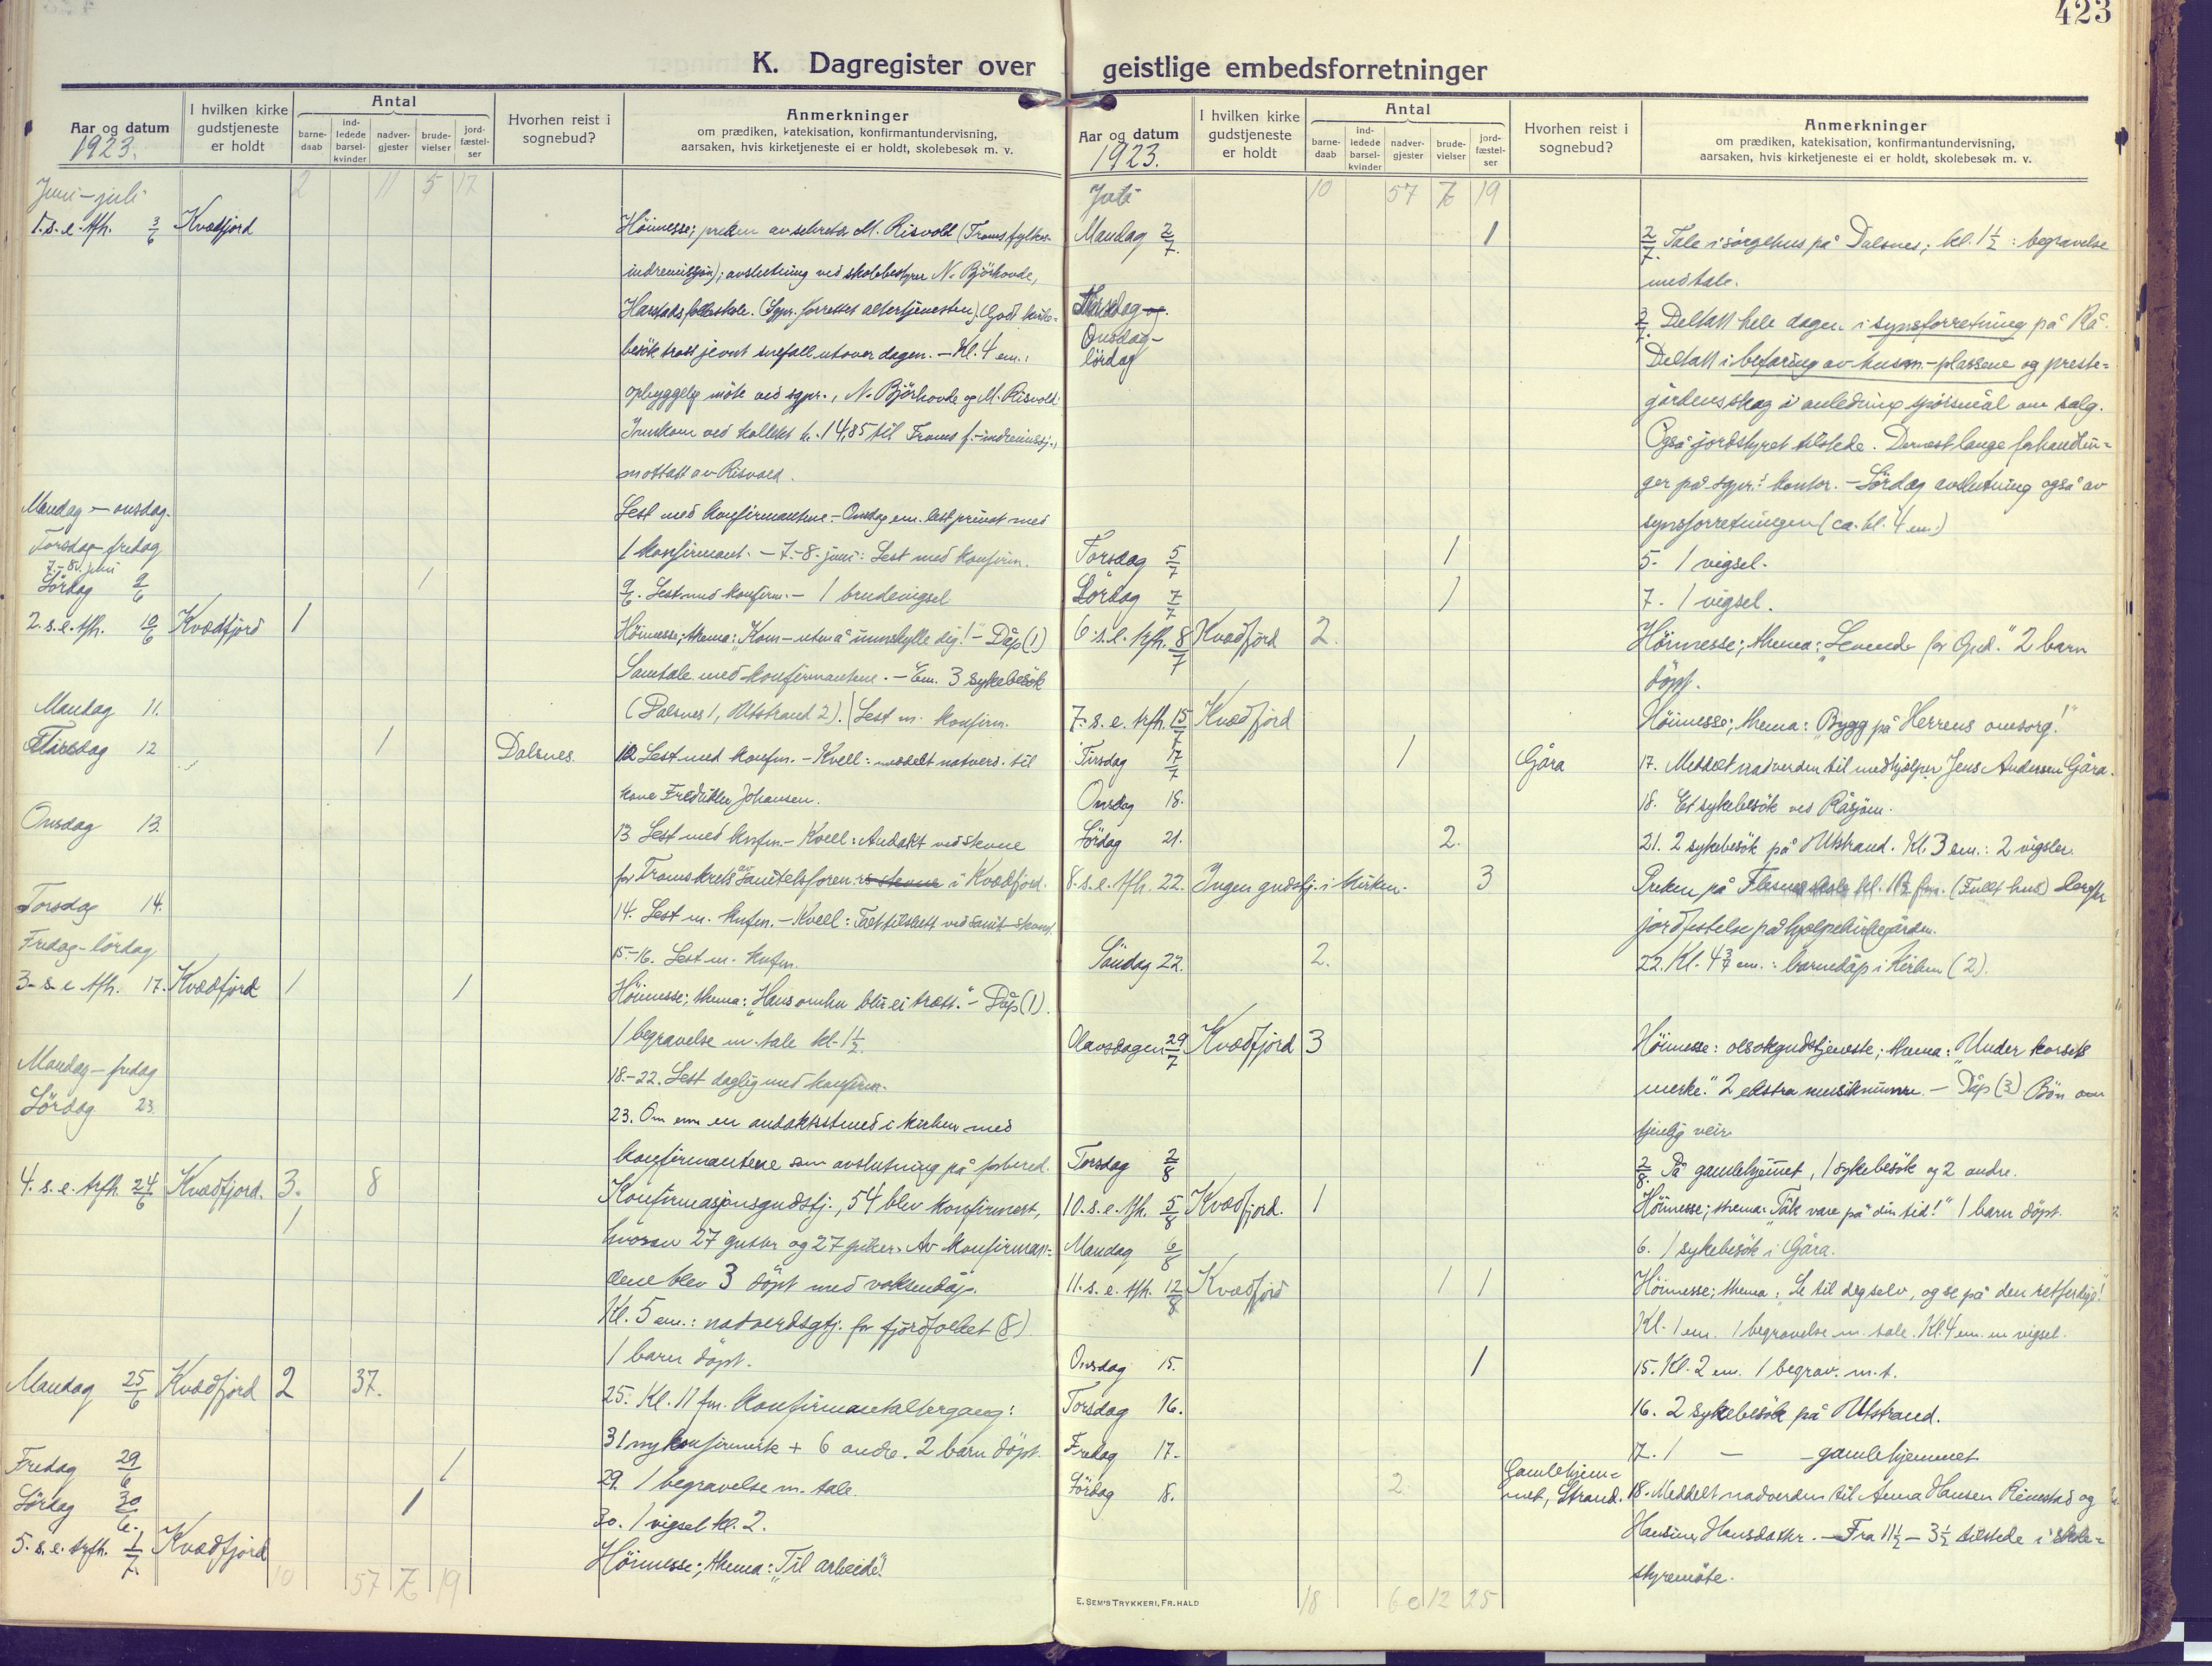 423
K. Dagregister over
Aar og datum
1923.
I hvilken kirke
gudstjeneste
er holdt
Antal
barne-
daab
ind-
ledede
barsel-
kvinder
nadver-
gjester
brude-
vielser
jord-
fæstel-
ser
Hvorhen reist i
sognebud?
Anmerkninger
om prædiken, katekisation, konfirmantundervisning,
aarsaken, hvis kirketjeneste ei er holdt, skolebesøk m. v.
Juni-juli 2 11 5 17
1.s.e.tfh. 3/6 Kvædfjord Höimesse; preken av sekretær M. Risvold (Troms fylkes-
indremission); avslutning ved skolebestyrer N. Björhovde,
Harstads folkeskole. (Sgpr. forrettet altertjenesten). Godt kirke-
besök trass jevnt snefall utover dagen. – Kl. 4 em.:
opbyggelig möte ved sgpr., N. Björhovde og M. Risvold
Innkom ved kollekt kr. 14,85 til Troms f.-indremissj.,
mottatt av Risvold.
Mandag – onsdag. Lest med konfirmantene. – Onsdag em. lest privat med
Torsdag-fredag 1 konfirmant. – 7.-8. juni: Lest med konfirm.
7.-8. juni
Lördag 9/6 1 9/6. Lest med konfirm. – 1 brudevigsel
2.s.e.tfh. 10/6 Kvædfjord 1 Höimesse; thema: "Kom – uten å unnskylle dig!" – Dåp (1)
Samtale med konfirmantene. – Em. 3 sykebesök
Mandag 11. (Dalsnes 1, Utstrand 2). / Lest m. konfirm.
Tirsdag 12 1 Dalsnes. 12 Lest med konfm. – Kvell: meddelt natverd. til
kone Fredrikke Johansen.
Onsdag 13. 13 Lest med konfm. – Kvell: Andakt ved stevne
for Troms krets av Sanitetsforen. i Kvædfjord.
Torsdag 14. 14. Lest m. konfm. – Kvell: Tatt tilstett ved Sanit-stevnet.
Fredag-lördag 15.-16. Lest m. konfm.
3.s.e.tfh. 17. Kvædfjord 1 1 Höimesse; thema: "Hans omhu blir ei trætt." – Dåp (1).
1 begravelse m. tale kl. 1½.
Mandag – fredag 18.-22. Lest daglig med konfirm.
Lördag 23. 23. Om em en andaktsstund i kirken med
konfirmantene som avslutning på forbered.
4.s.e.trfh. 24/6 Kvædfjord. 3. 8 Konfirmasjonsgudstj., 54 blev konfirmert,
1 hvorav 27 gutter og 27 piker. Av konfirman-
dene blev 3 döpt med voksendåp.
Kl. 5 em.: nadverdsgtj. for fjordfolket (8)
1 barn döpt.
Mandag 25/6 Kvædfjord 2 37. 25. Kl. 11 fm. konfirmantaltergang:
31 nykonfirmerte + 6 andre. 2 barn döpt.
Fredag 29/6 1 29. 1 begravelse m. tale.
Lördag 30/6. 1 30. 1 vigsel kl. 2.
5.s.e.trfh. 1/7. Kvædfjord Höimesse; thema: "Til arbeide!"
10 57 7 19
geistlige embedsforretninger
Aar og datum
1923.
I hvilken kirke
gudstjeneste
er holdt
Antal
barne-
daab
ind-
ledede
barsel-
kvinder
nadver-
gjester
brude-
vielser
jord-
fæstel-
ser
Hvorhen reist i
sognebud?
Anmerkninger
om prædiken, katekisation, konfirmantundervisning,
aarsaken, hvis kirketjeneste ei er holdt, skolebesøk m. v.
Juli 10 57 7 19
Mandag 2/7. 1 2/7. Tale i sörgehus på Dalsnes; kl. 1½: begravelse
med tale.
Tirsdag og 3/7. Deltatt hele dagen i synsforretning på Rå.
Onsdag- Deltatt i befaring av husm.-plassene og preste-
lördag gårdens skog i anledning spörsmål om salg.
Også jordstyret tilstede. Dernest lange forhandlin-
ger på sgpr.s kontor. – Lördag avslutning også av
synsforretningen (ca. kl. 4 em.)
Torsdag 5/7 1 5. 1 vigsel.
Lördag 7/7 1 7. 1 vigsel.
6.s.e.trfh. 8/7 Kvædfjord 2. Höimesse; thema: "Levende for Gud." 2 barn
döpt.
7.s.e.trfh. 15/7 Kvædfjord Höimesse; thema: "Bygg på Herrens omsorg!"
Tirsdag 17/7 1 Gåra 17. Meddelt nadverden til medhjelper Jens Andersen Gåra.
Onsdag 18. 18. Et sykebesök ved Råsjöen.
Lördag 21. 2. 21. 2 sykebesök på Utstrand. Kl. 3 em.: 2 vigsler.
8.s.e.tfh. 22. Ingen gudstj. i kirken. 3 Preken på Flesnes skole kl. 10½ fm. (Fullt hus) derefter
jordfestelse på hjelpekirkegården.
Söndag 22. 2. 22. Kl. 4¾ em.: barnedåp i kirken (2).
Olavsdagen 29/7 Kvædfjord 3 Höimesse: olsokgudstjeneste; thema: "Under korsets
merke." 2 ekstra musiknumre. – Dåp (3) Bön om
tjenlig veir.
Torsdag 2/8 2/8. På gamlehjemmet, 1 sykebesök og 2 andre.
10.s.e.tfh. 5/8 Kvædfjord. 1 Höimesse; thema: "Tak vare på din tid!" 1 barn döpt.
Mandag 6/8 6. 1 sykebesök i Gåra.
11.s.e.tfh. 12/8 Kvædfjord 1 1 Höimesse; thema: "Se til deg selv, og se på den retferdige!"
Kl. 1 em. 1 begravelse m. tale. Kl. 4 em. en vigsel.
Onsdag 15. 1 15. Kl. 2 em. 1 begrav. m. t.
Torsdag 16. 16. 2 sykebesök på Utstrand.
Fredag 17. 17. 1 — – gamlehjemmet
Lördag 18. 2 Gamlehjem-
met, Strand. 18. Meddelt nadverden til Anna Hansen Rinestad og
Hansine Hansdatter. – Fra 11½ – 3½ tilstede i skole-
styremöte.
18 60 12 25
E. SEM'S TRYKKERI, FR.HALD